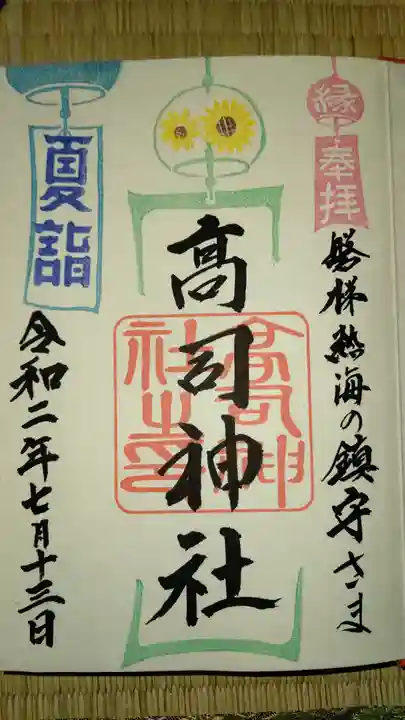 縁
奉拝
磐梯熱海の鎮守さま
高司神社
高司神
社之印
夏詣
令和二年七月十三日